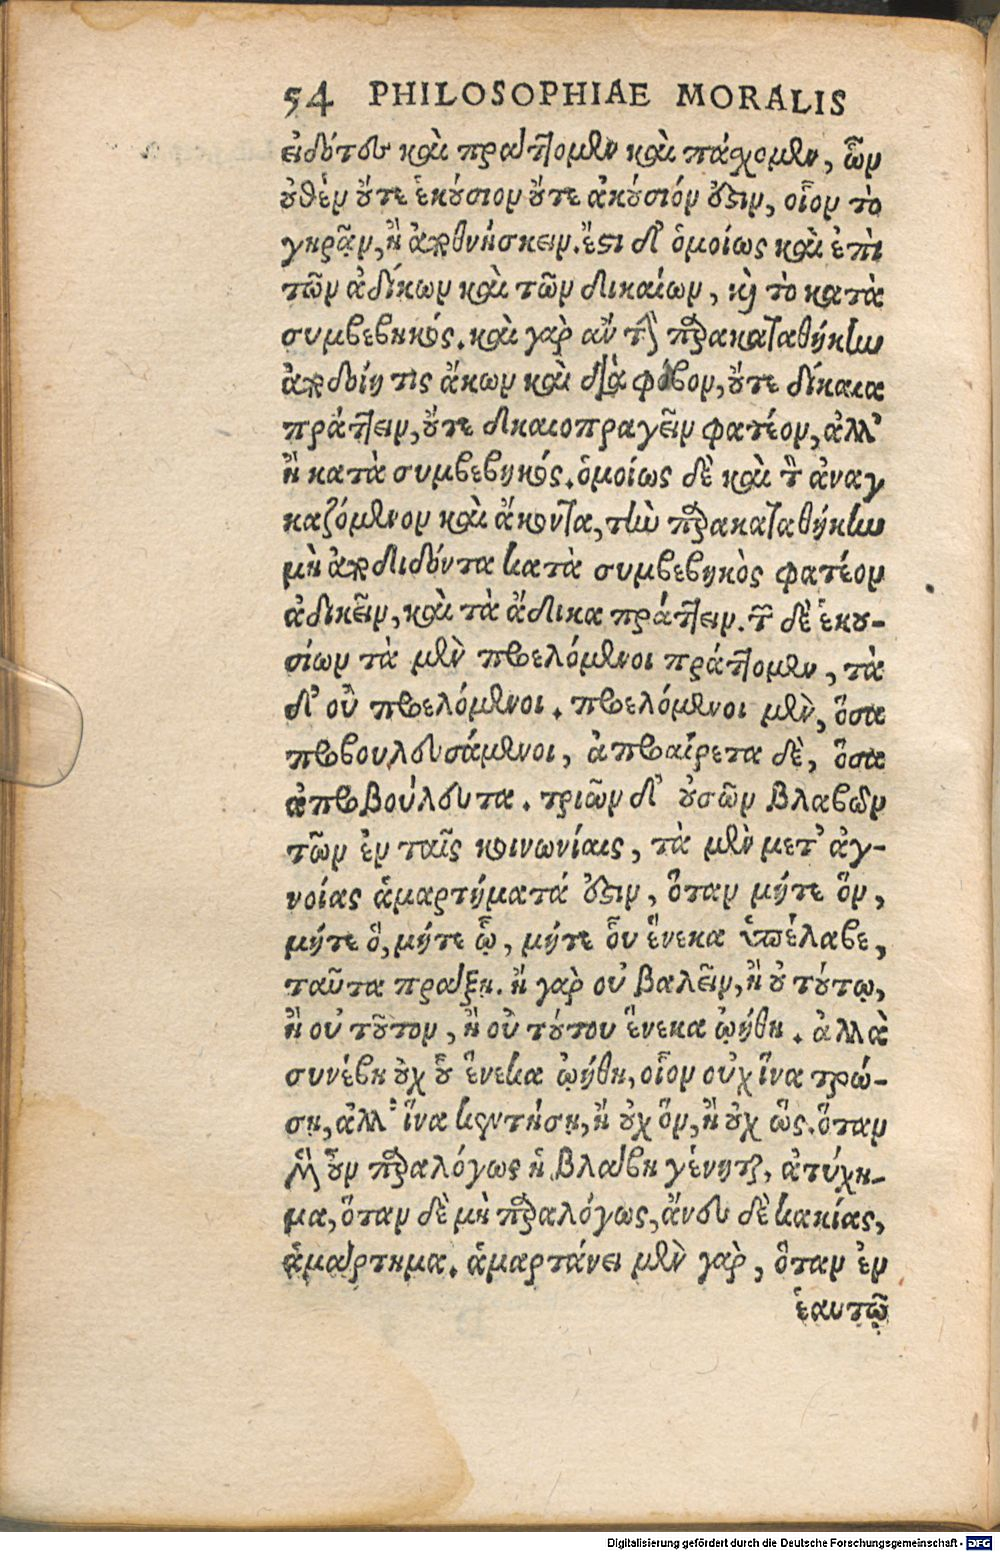 54 PHILOSOPHIAE MORALIS
εἰδότες καὶ πράττομεν καὶ πάσχομεν, ὧν
οὐθὲν οὔτε ἑκούσιον οὔτε ἀκούσιόν ἐστιν, οἷον τὸ
γηρᾷν, ἢ ἀποθνήσκειν. ἔστι δ' ὁμοίως καὶ ἐπὶ
τῶν ἀδίκων καὶ τῶν δικαίων, καὶ τὸ κατὰ
συμβεβηκός. καὶ γὰρ ἂν τὴν παρακαταθήκην
ἀποδοίη τις ἄκων καὶ διὰ φόβον, οὔτε δίκαια
πράττειν, οὔτε δικαιοπραγεῖν φατέον, ἀλλ'
ἢ κατὰ συμβεβηκός. ὁμοίως δὲ καὶ τὸν ἀναγ
καζόμενον καὶ ἄκοντα, τὴν παρακαταθήκην
μὴ ἀποδιδόντα κατὰ συμβεβηκὸς φατέον
ἀδικεῖν, καὶ τὰ ἄδικα πράττειν. τῶν δὲ ἑκου-
σίων τὰ μὲν προελόμενοι πράττομεν, τὰ
δ' οὐ προελόμενοι. προελόμενοι μὲν, ὅσα
προβουλευσάμενοι, ἀπροαίρετα δὲ, ὅσα
ἀπροβούλευτα. τριῶν δ' οὐσῶν βλαβῶν
τῶν ἐν ταῖς κοινωνίαις, τὰ μὲν μετ' ἀγ-
νοίας ἁμαρτήματά ἐστιν, ὅταν μήτε ὃν,
μήτε ὃ, μήτε ᾧ, μήτε οὗ ἕνεκα ὑπέλαβε,
ταῦτα πράξῃ. ἢ γὰρ οὐ βαλεῖν, ἢ οὐ τούτῳ,
ἢ οὐ τοῦτον, ἢ οὐ τούτου ἕνεκα ᾠήθη. ἀλλὰ
συνέβη οὐχ οὗ ἕνεκα ᾠήθη, οἷον οὐχ ἵνα τρώ-
σῃ, ἀλλ' ἵνα κεντήσῃ, ἢ οὐχ ὃν, ἢ οὐχ ὣς. ὅταν
μὲν οὖν παραλόγως ἡ βλάβη γένηται, ἀτύχη-
μα, ὅταν δὲ μὴ παραλόγως, ἄνευ δὲ κακίας,
ἁμάρτημα. ἁμαρτάνει μὲν γὰρ, ὅταν ἐν
ἑαυτῷ
Digitalisierung gefördert durch die Deutsche Forschungsgemeinschaft - DFG